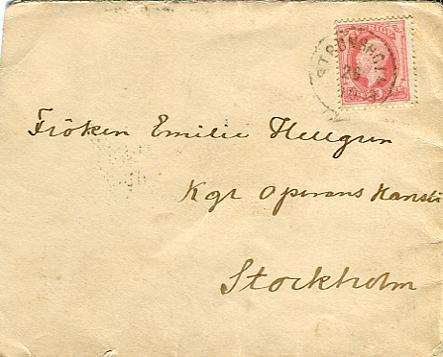 SVERIGE
Fröken Emilie Hellgren
Kgl Operans Kansli
Stockholm